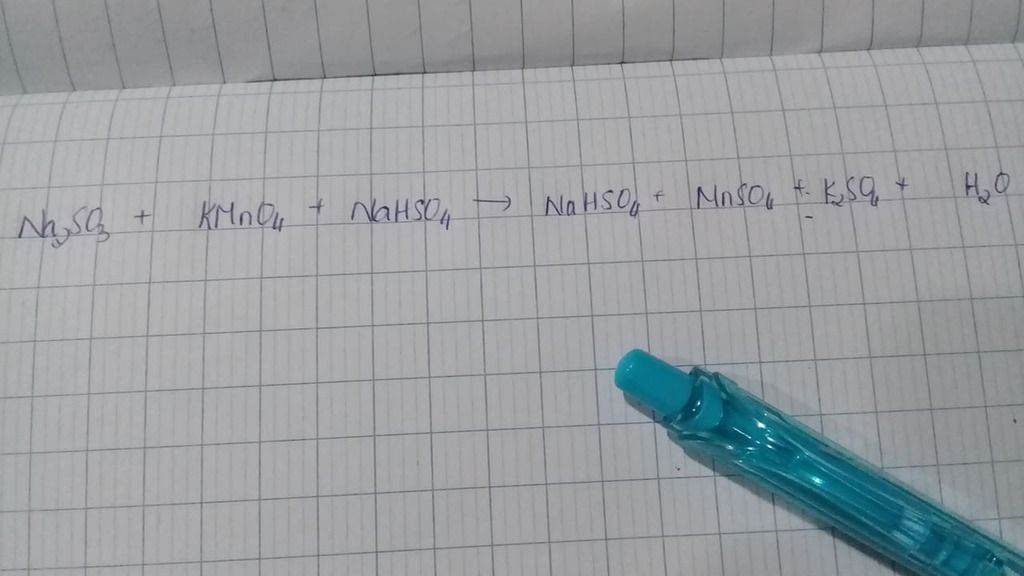 Na₂SO₃ + KMnO₄ + NaHSO₄ → NaHSO₄ + MnSO₄ + K₂SO₄ + H₂O